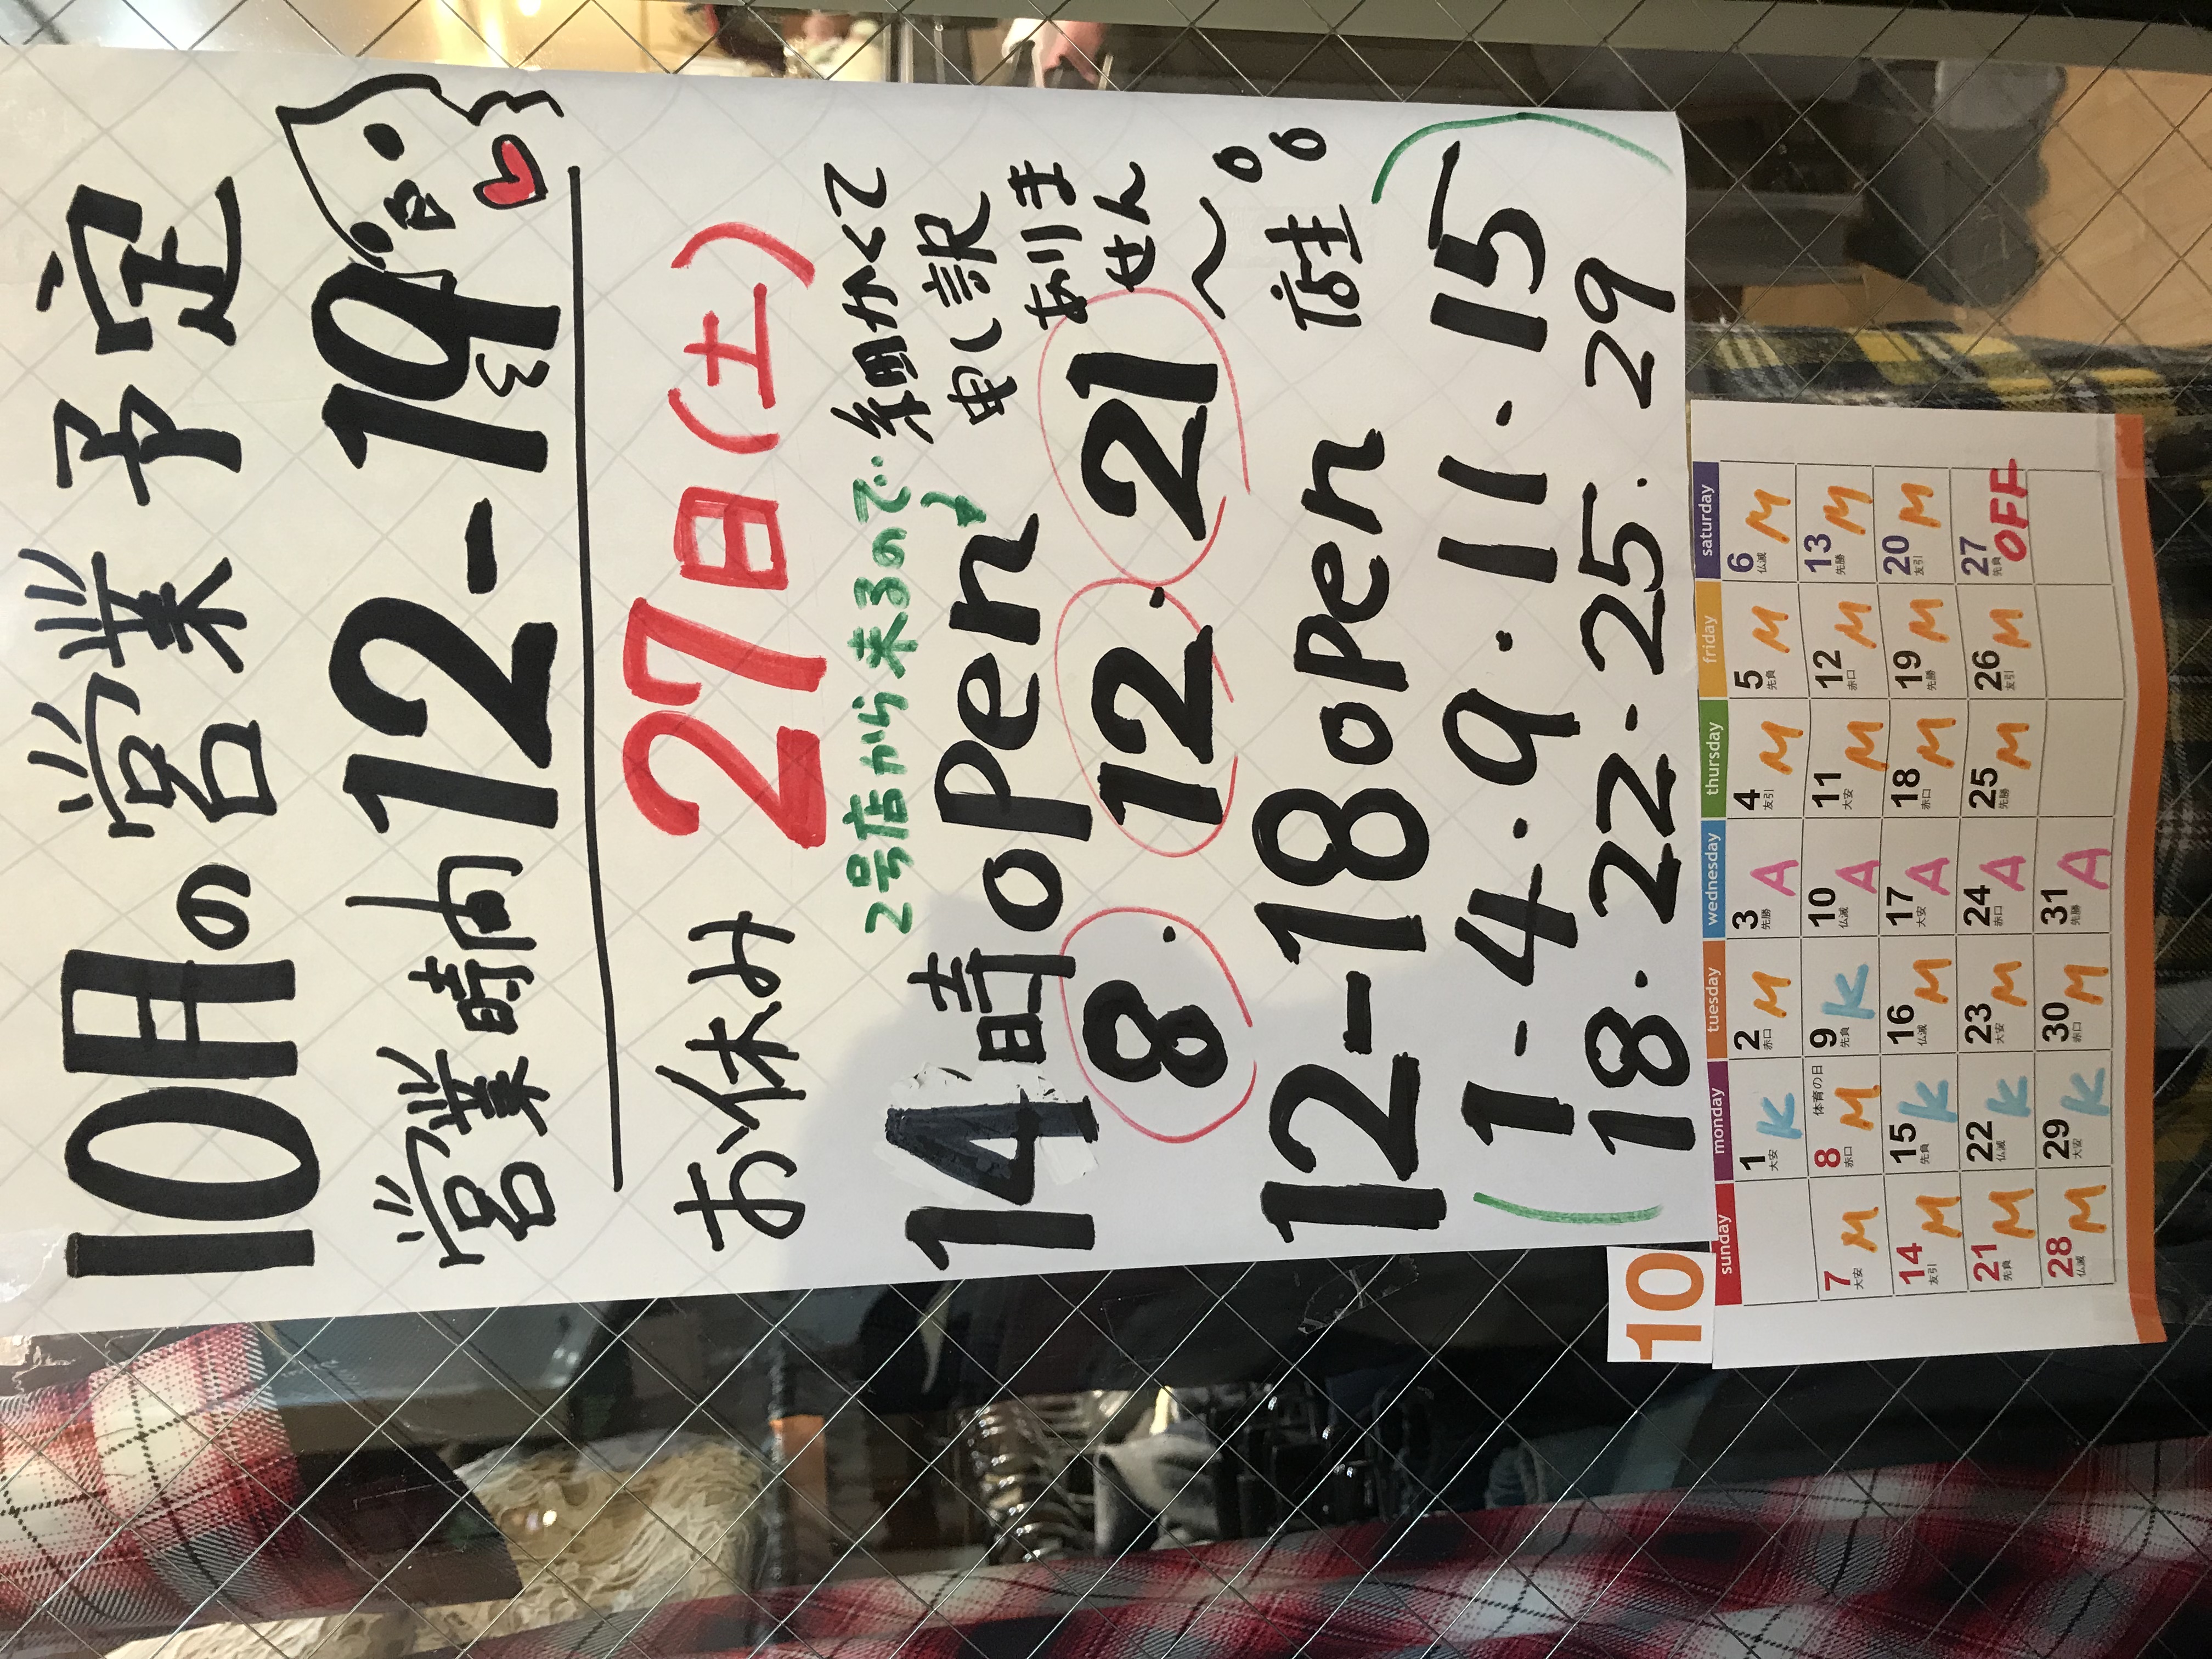 10月の営業予定
営業時間12-19
お休み 27日(土)
2号店から来るので‥
細かくて
申し訳
ありま
せん
14時open
8.12.21
店主
12-18open
1.4.9.11.15
18.22.25.29
10
sunday monday tuesday wednesday thursday friday saturday
1 大安 K 2 赤口 M 3 先勝 A 4 友引 M 5 先負 M 6 仏滅 M
7 大安 M 8 体育の日 赤口 M 9 先負 K 10 仏滅 A 11 大安 M 12 赤口 M 13 先勝 M
14 友引 M 15 先負 K 16 仏滅 M 17 大安 A 18 赤口 M 19 先勝 M 20 友引 M
21 先負 M 22 仏滅 K 23 大安 M 24 赤口 A 25 先勝 M 26 友引 M 27 先負 OFF
28 仏滅 M 29 大安 K 30 赤口 M 31 先勝 A